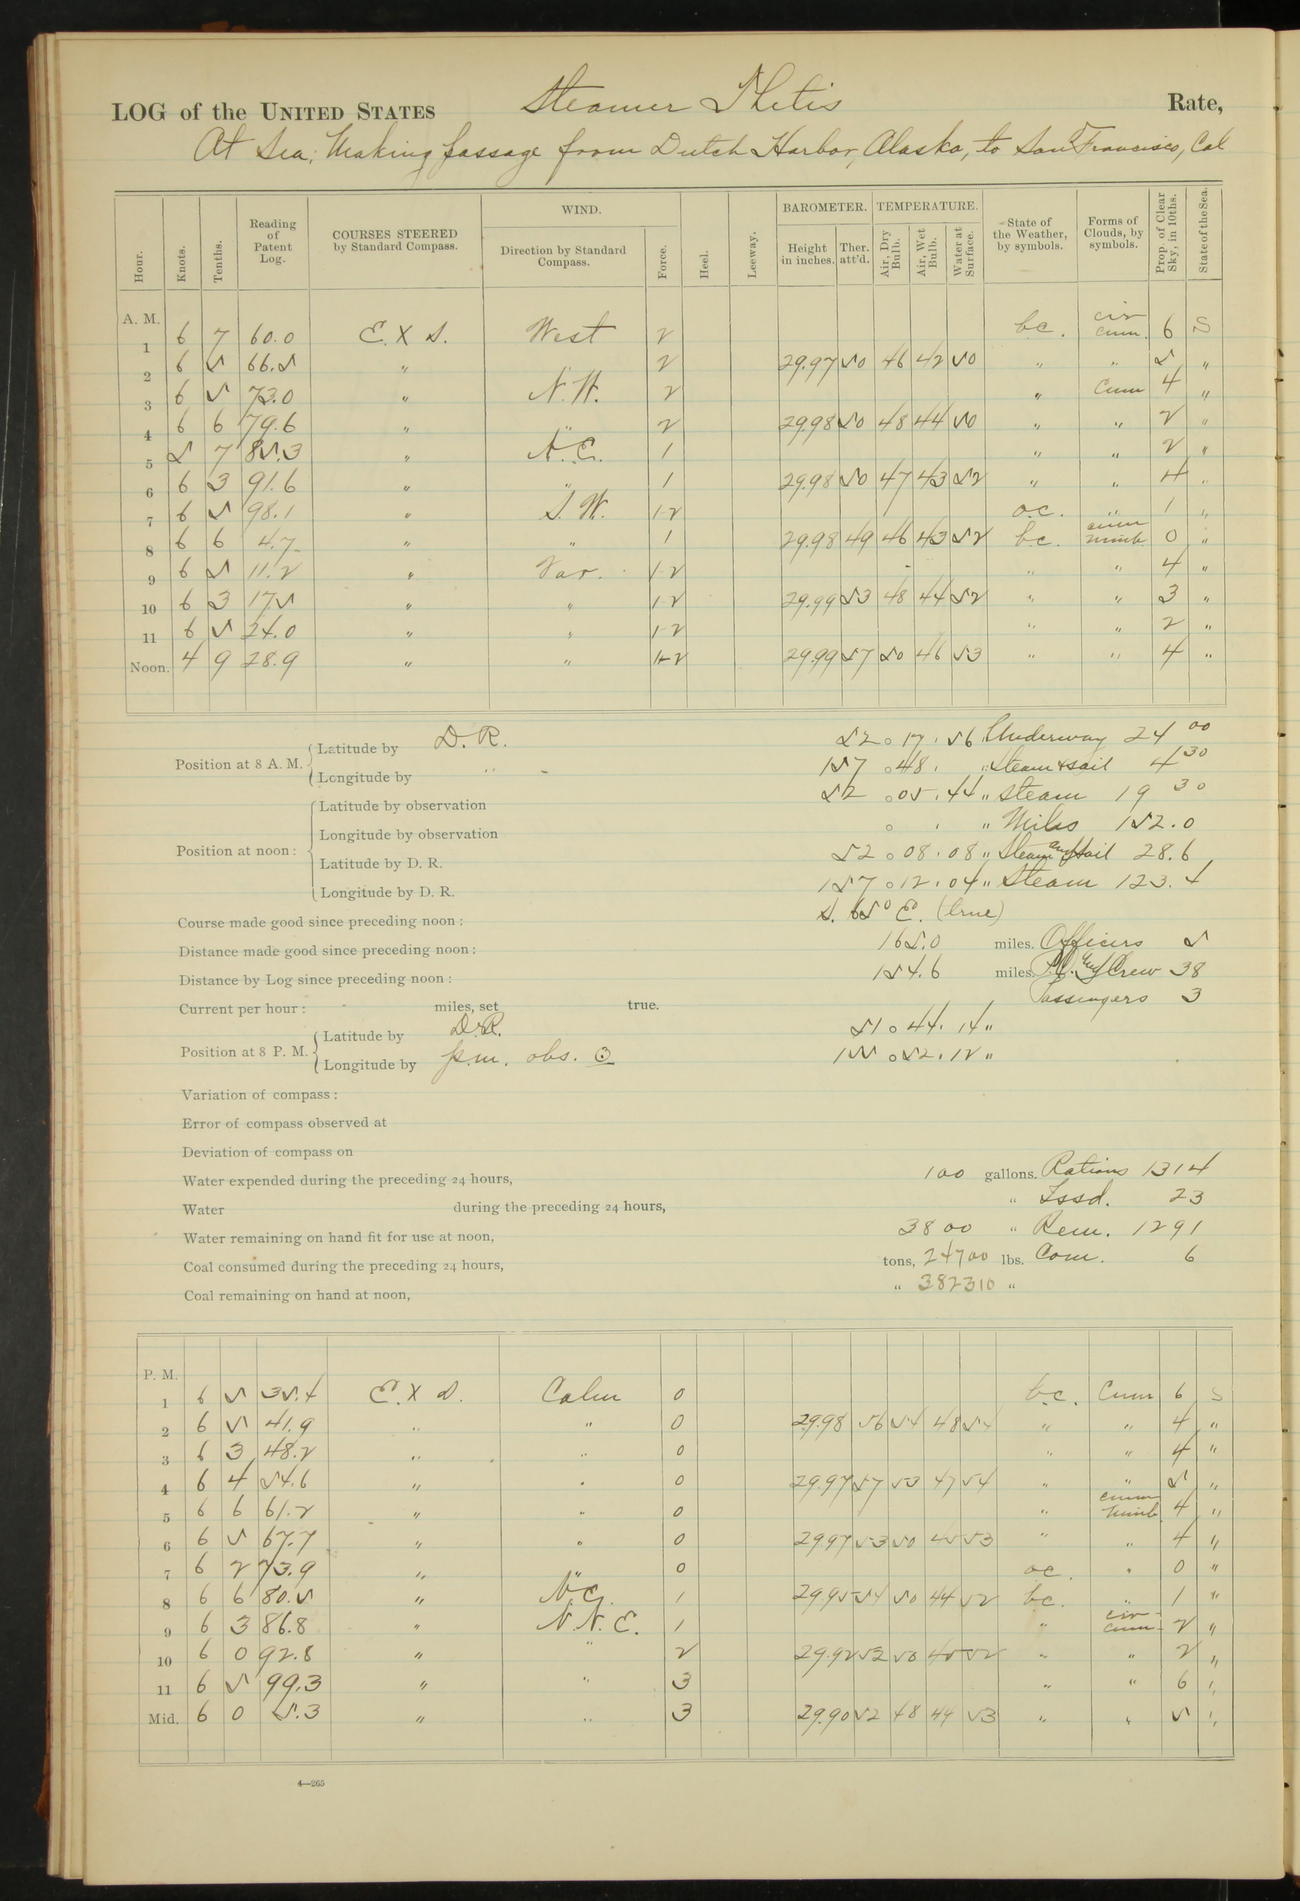 LOG of the UNITED STATES Steamer Thetis Rate,
At Sea; Making passage from Dutch Harbor, Alaska, to San Francisco, Cal
Hour. Knots. Tenths. Reading of Patent Log. COURSES STEERED by Standard Compass. WIND. Direction by Standard Compass. Force. Heel. Leeway. BAROMETER. Height in inches. Ther. att'd. TEMPERATURE. Air, Dry Bulb. Air, Wet Bulb. Water at Surface. State of the Weather, by symbols. Forms of Clouds, by symbols. Prop. of Clear Sky, in 10ths. State of the Sea.
A. M.
1 6 7 60.0 E. X S. West 2 bc. cir cum. 6 S
2 6 5 66.5 " 2 29.97 50 46 42 50 " " 5 "
3 6 5 73.0 " N.W. 2 " Cum 4 "
4 6 6 79.6 " " 2 29.98 50 48 44 50 " " 2 "
5 5 7 85.3 " N.E. 1 " " 2 "
6 6 3 91.6 " " 1 29.98 50 47 43 52 " " 4 "
7 6 5 98.1 " S.W. 1-2 o.c. " 1 "
8 6 6 4.7 " " 1 29.98 49 46 43 52 bc. cum nimb. 0 "
9 6 5 11.2 " Var. 1-2 " " 4 "
10 6 3 17.5 " " 1-2 29.99 53 48 44 52 " " 3 "
11 6 5 24.0 " " 1-2 " " 2 "
Noon. 4 9 28.9 " " 1-2 29.99 57 50 46 53 " " 4 "
Position at 8 A. M. Latitude by D. R. 52 ° 17 ' 56 Underway 24 00
Longitude by " 157 ° 48 ' " Steam & sail 4 30
Position at noon: Latitude by observation 52 ° 05 ' 44 " Steam 19 30
Longitude by observation ° ' " Miles 152.0
Latitude by D. R. 52 ° 08 ' 08 " Steam and Sail 28.6
Longitude by D. R. 157 ° 12 ' 04 " Steam 123.4
Course made good since preceding noon: S. 65° E. (true)
Distance made good since preceding noon: 165.0 miles. Officers 5
Distance by Log since preceding noon: 154.6 miles. and Crew 38
Current per hour: miles, set true. Passengers 3
Position at 8 P. M. Latitude by D.R. 51 ° 44 ' 14 "
Longitude by p.m. obs. ☉ 155 ° 52 ' 12 "
Variation of compass:
Error of compass observed at
Deviation of compass on
Water expended during the preceding 24 hours, 100 gallons. Rations 1314
Water during the preceding 24 hours, " Issd. 23
Water remaining on hand fit for use at noon, 3800 " Rem. 1291
Coal consumed during the preceding 24 hours, tons, 24700 lbs. Com. 6
Coal remaining on hand at noon, " 382310 "
P. M.
1 6 5 35.4 E. X S. Calm 0 bc. Cum 6 S
2 6 5 41.9 " " 0 29.98 56 54 48 54 " " 4 "
3 6 3 48.2 " " 0 " " 4 "
4 6 4 54.6 " " 0 29.97 57 53 47 54 " " 5 "
5 6 6 61.2 " " 0 " cum nimb. 4 "
6 6 5 67.7 " " 0 29.97 53 50 45 53 " " 4 "
7 6 2 73.9 " " 0 oc. " 0 "
8 6 6 80.5 " N.E. 1 29.95 54 50 44 52 bc. " 1 "
9 6 3 86.8 " N.N.E. 1 " cir-cum- 2 "
10 6 0 92.8 " " 2 29.92 52 50 45 52 " " 2 "
11 6 5 99.3 " " 3 " " 6 "
Mid. 6 0 5.3 " " 3 29.90 52 48 44 53 " " 5 "
4—265